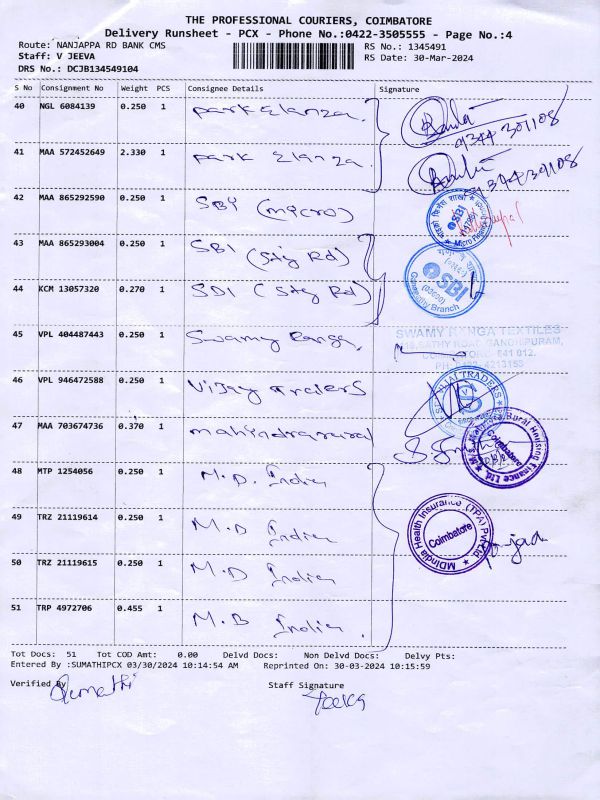 THE PROFESSIONAL COURIERS, COIMBATORE
Delivery Runsheet - PCX - Phone No.:0422-3505555 - Page No.:4
Route: NANJAPPA RD BANK CMS RS No.: 1345491
Staff: V JEEVA RS Date: 30-Mar-2024
DRS No.: DCJB134549104
S No Consignment No Weight PCS Consignee Details Signature
40 NGL 6084139 0.250 1 Park Elanza.
9344301108
41 MAA 572452649 2.330 1 Park Elanza.
9344301108
42 MAA 865292590 0.250 1 SBI (micro)
SBI
43 MAA 865293004 0.250 1 SBI (Sty Rd)
SBI
Branch
44 KCM 13057320 0.270 1 SBI (Sty Rd)
45 VPL 404487443 0.250 1 Swamy Ranga. SWAMY RANGA TEXTILES
46 VPL 946472588 0.250 1 Vijay Traders
TRADERS
47 MAA 703674736 0.370 1 mahindra rural
Rural Housing Finance Ltd.
Coimbatore
48 MTP 1254056 0.250 1 M.D. India
49 TRZ 21119614 0.250 1 M.D India
MDIndia Health Insurance (TPA) Pvt Ltd
Coimbatore
50 TRZ 21119615 0.250 1 M.D India
51 TRP 4972706 0.455 1 M.D India.
Tot Docs: 51 Tot COD Amt: 0.00 Delvd Docs: Non Delvd Docs: Delvy Pts:
Entered By :SUMATHIPCX 03/30/2024 10:14:54 AM Reprinted On: 30-03-2024 10:15:59
Verified By Staff Signature
Sumathi